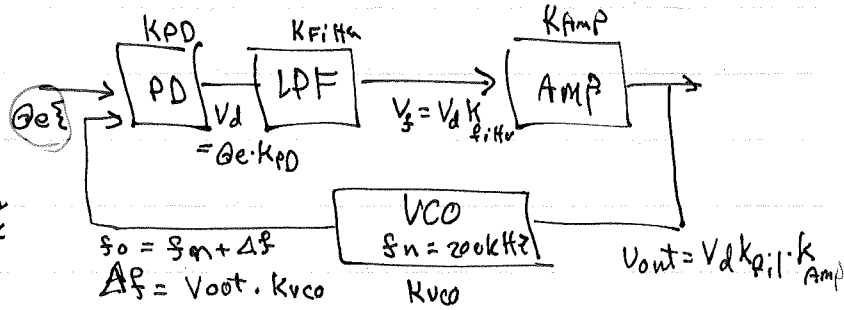 KPD
KFilter
KAmp
PD
LPF
AMP
θe{
Vd
= θe·KPD
Vf = Vd Kfilter
VCO
fn = 200kHz
KVCO
fo = fn + Δf
Δf = Voot · KVCO
Vout = Vd kfil · KAmp